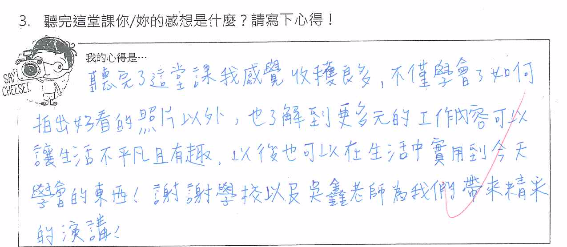 3. 聽完這堂課你/妳的感想是什麼？請寫下心得！
我的心得是…
SAY CHEESE!
聽完了這堂課我感覺收穫良多，不僅學會了如何
拍出好看的照片以外，也了解到更多元的工作內容可以
讓生活不平凡且有趣，以後也可以在生活中實用到今天
學會的東西！謝謝學校以及吳鑫老師為我們帶來精采
的演講！